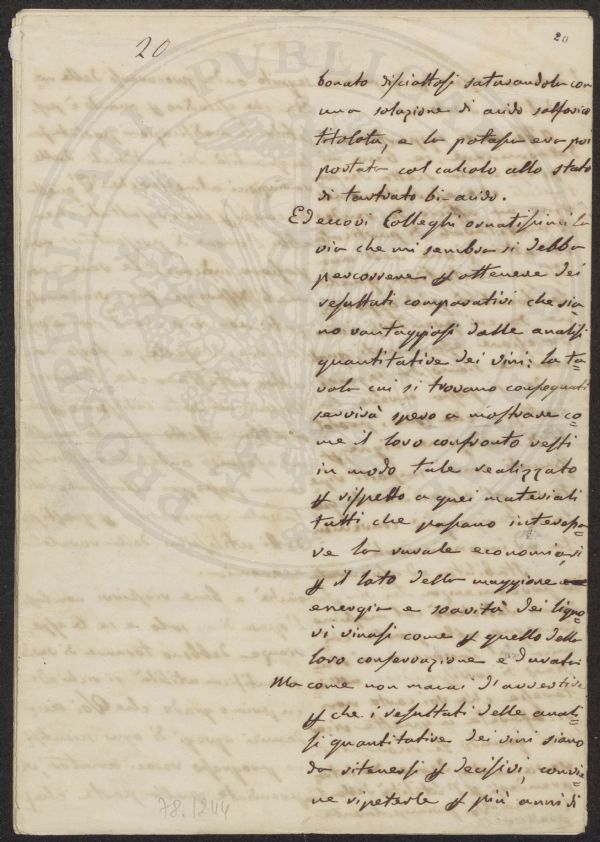 20
20
bonato disciattasi saturandola con
una soluzione di acido solforico
titolata, e la potassa era poi
portata col calcolo allo stato
di tartrato bi-acido.
Ed eccovi Colleghi ornatissimi la
via che mi sembra si debba
percorrere ꝑ ottenere dei
resultati comparativi che sia=
no vantaggiosi dalle analisi
quantitative dei vini: la ta=
vola cui si trovano consegnati
servirà spero a mostrare co=
me il loro confronto resti
in modo tale realizzato
ꝑ rispetto a quei materiali
tutti che possano interessa=
re la rurale economia, sì
ꝑ il lato della maggiore
energia e soavità dei liquo=
ri vinosi come ꝑ quello della
loro conservazione e durata.
Ma come non mancai d'avvertire
ꝑ che i resultati delle anali=
si quantitative dei vini siano
da ritenersi ꝑ decisivi, convie=
ne ripeterle ꝑ più anni di
78.1244
PROSPERITATI PUBLIC